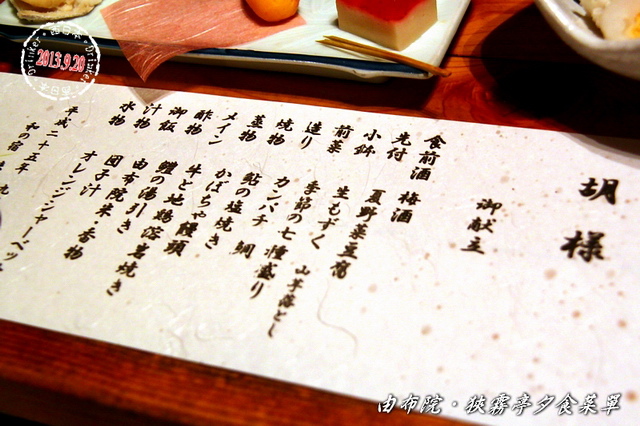 胡様
御献立
食前酒 梅酒
先付 夏野菜豆腐
小鉢 生もずく 山芋落とし
前菜 季節の七種盛り
造り カンパチ 鯛
焼物 鮎の塩焼き
蒸物 かぼちゃ饅頭
メイン 牛と地鶏溶岩焼き
酢物 鱧の湯引き
御飯 由布院米 香物
汁物 団子汁
水物 オレンジシャーベッ
平成二十五年
和の宿
2013.9.20
由布院・狹霧亭夕食菜單